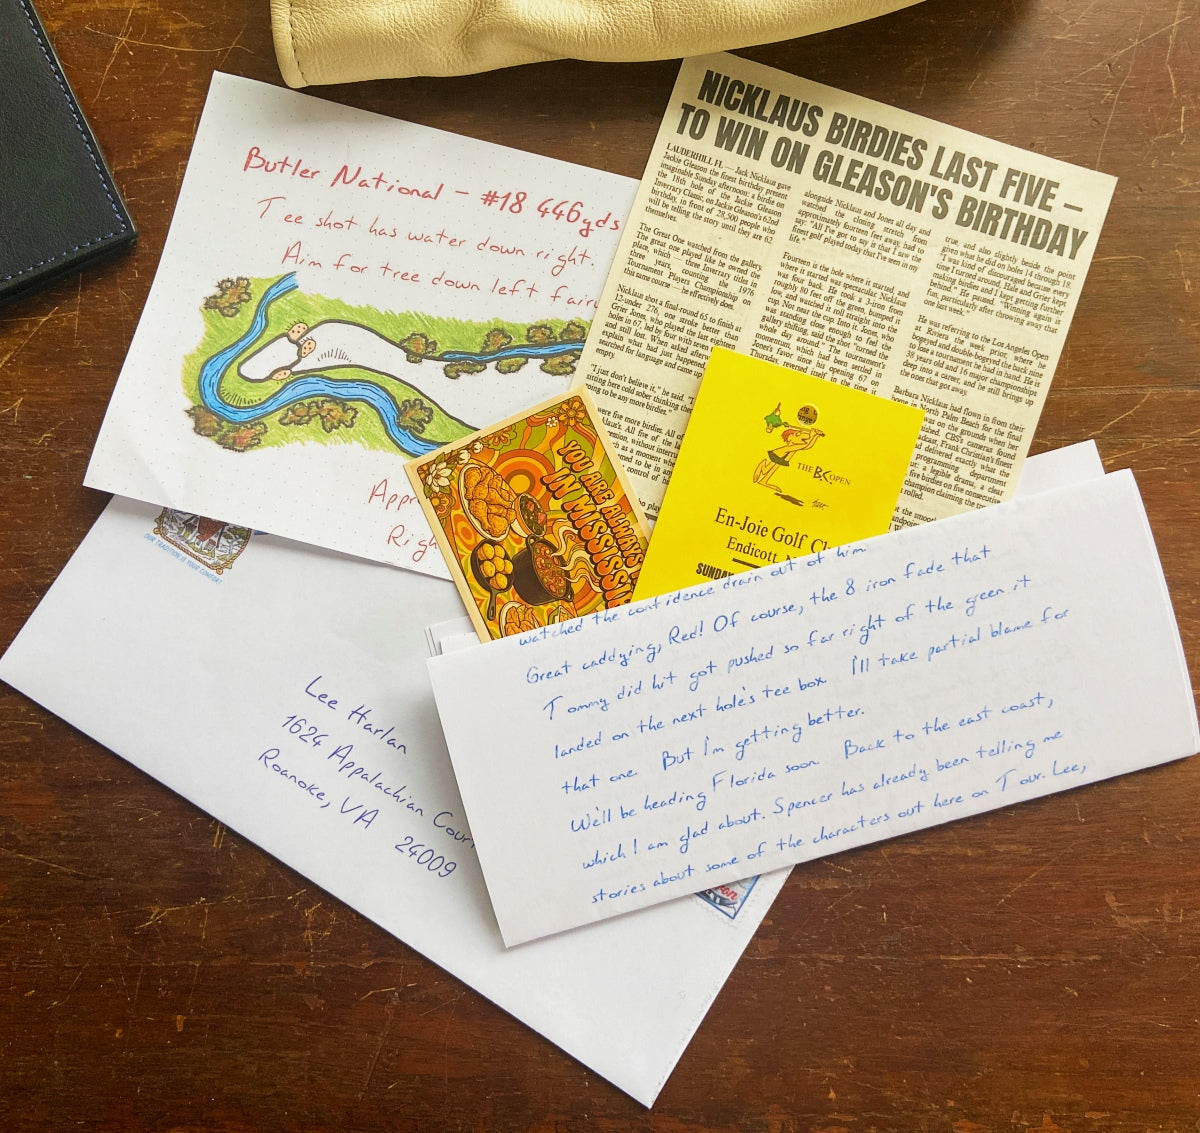 Butler National – #18 446yds
Tee shot has water down right.
Aim for tree down left
NICKLAUS BIRDIES LAST FIVE –
TO WIN ON GLEASON'S BIRTHDAY
LAUDERHILL FL — Jack Nicklaus gave
Jackie Gleason the finest birthday present
imaginable Sunday afternoon: a birdie on
the 18th hole of the Jackie Gleason
Inverrary Classic, on Jackie Gleason's 62nd
birthday, in front of 28,500 people who
will be telling the story until they are 62
themselves.
The Great One watched from the gallery.
The great one played like he owned the
place, which — three Inverrary titles in
three years, counting the 1976
Tournament Players Championship on
this same course — he effectively does.
Nicklaus shot a final-round 65 to finish at
12-under 276, one stroke better than
Grier Jones, who played the last eighteen
holes in 67, led by four with seven
and still lost. When asked
explain what had just happened,
searched for language and came up
empty.
"I just don't believe it," he said. "I
sitting here cold sober thinking
going to be any more birdies."
were five more birdies. All of
All five of the
without
as a moment
to be in
control of
play
alongside Nicklaus and Jones all day and
watched the closing stretch from
approximately fourteen feet away, had
say: "All I've got to say is that I saw the
finest golf played today that I've seen in my
life."
Fourteen is the hole where it started, and
where it started was spectacular. Nicklaus
was four back. He took a 3-iron from
roughly 80 feet off the green, bumped it
low, and watched it roll straight into the
cup. Not near the cup. Into it. Jones, who
was standing close enough to feel the
gallery shifting, said the shot "turned the
whole day around." The tournament's
momentum, which had been settled in
Jones's favor since his opening 67 on
Thursday, reversed itself in the time it
true, and also slightly beside the point
given what he did on holes 14 through 18.
"I was kind of discouraged because every
time I turned around, Hale and Grier kept
making birdies and I kept getting further
behind." He paused. "Winning again is
fun, particularly after throwing away that
one last week."
He was referring to the Los Angeles Open
at Riviera the week prior, where he
bogeyed and double-bogeyed the back nine
to lose a tournament he had in hand. He is
38 years old and 16 major championships
deep into a career, and he still brings up
the ones that got away.
Barbara Nicklaus had flown in from their
home in North Palm Beach for the final
was on the grounds when her
CBS's cameras found
Frank Christian's finest
delivered exactly what the
programming department
a legible drama, a clear
five birdies on five consecutive
champion claiming the
rolled.
the
YOU ARE ALWAYS
IN
THE B.C. OPEN
En-Joie Golf
Endicott,
OUR TRADITION IS YOUR COMFORT
watched the confidence drain out of him
Great caddying, Red! Of course, the 8 iron fade that
Tommy did hit got pushed so far right of the green it
landed on the next hole's tee box. I'll take partial blame for
that one. But I'm getting better.
We'll be heading Florida soon. Back to the east coast,
which I am glad about. Spencer has already been telling me
stories about some of the characters out here on Tour. Lee,
Lee Harlan
1624 Appalachian
Roanoke, VA
24009